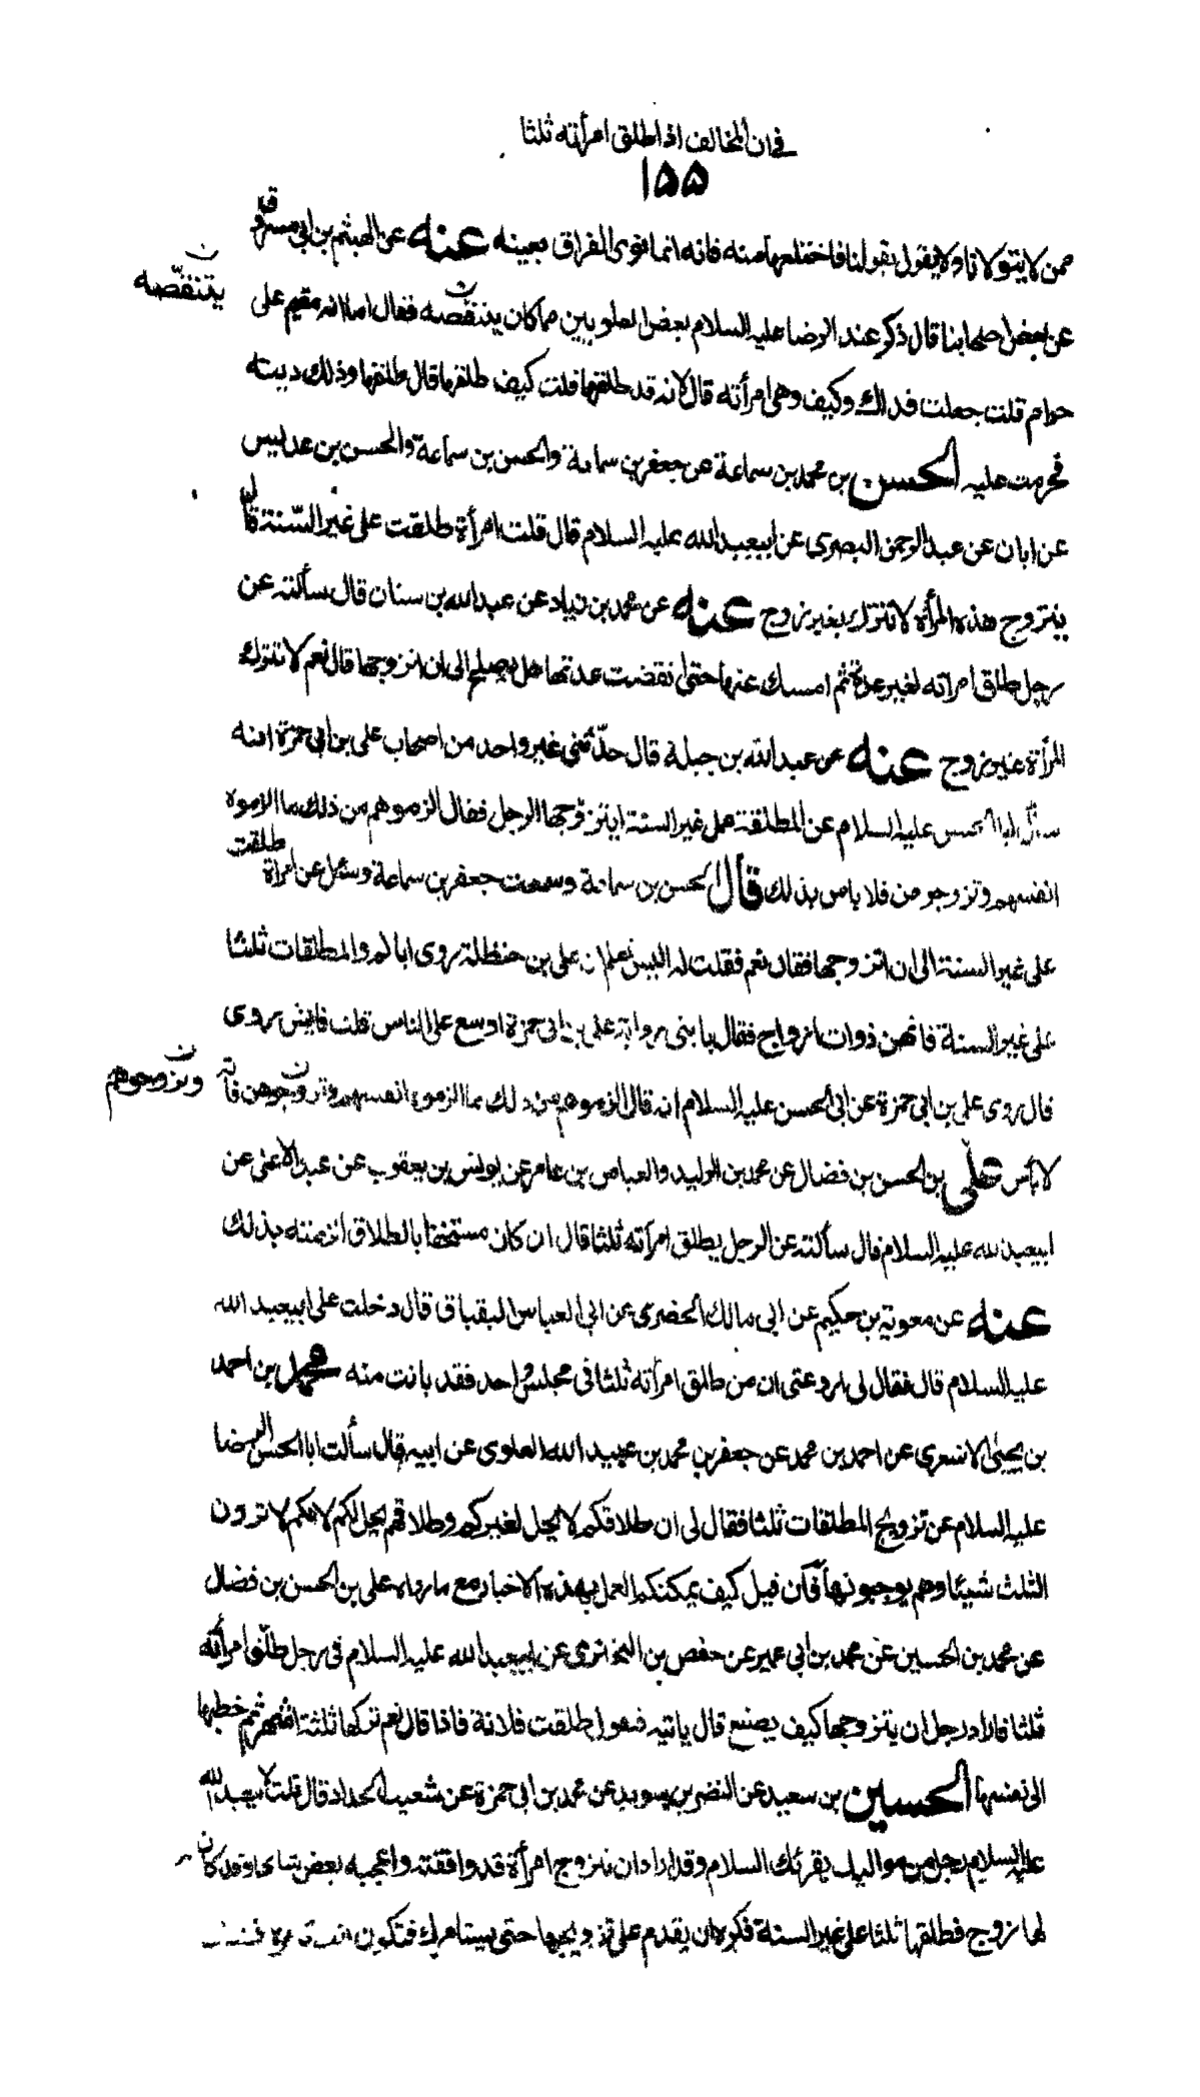 في ان المخالف اذا طلق امرأته ثلثا
١٥٥
ممن لا يتولانا ولا يقول بقولنا فاختلعها منه فانه انما نوى الفراق بعينه عنه عن الهيثم بن ابي مسروق
عن بعض اصحابنا قال ذكر عند الرضا عليه السلام بعض العلويين مما كان يتنقصه فقال اما انه مقيم على
يتنقّصه ن
حرام قلت جعلت فداك وكيف وهي امرأته قال لانه قد طلقها قلت كيف طلقها قال طلقها وذلك دينه
فحرمت عليه الحسن بن محمد بن سماعة عن جعفر بن سماعة والحسن بن سماعة والحسن بن عديس
عن ابان عن عبد الرحمن البصري عن ابيعبد الله عليه السلام قال قلت امرأة طلقت على غير السّنة قال
يتزوج هذه المرأة لا تترك بغير زوج عنه عن محمد بن زياد عن عبد الله بن سنان قال سألته عن
رجل طلق امراته لغير عدة ثم امسك عنها حتى انقضت عدتها هل يصلح الى ان اتزوجها قال نعم لا تترك
المرأة بغير زوج عنه عن عبد الله بن جبلة قال حدّثني غير واحد من اصحاب علي بن ابي حمزة انه
سأل ابا الحسن عليه السلام عن المطلقة على غير السنة ايتزوّجها الرجل فقال الزموهم من ذلك ما الزموه
انفسهم وتزوجوهن فلا باس بذلك قال الحسن بن سماعة وسمعت جعفر بن سماعة وسئل عن امراة طلقت
على غير السنة الى ان اتزوجها فقال نعم فقلت له اليس تعلم ان علي بن حنظلة روى ايا كم والمطلقات ثلثا
على غير السنة فانهن ذوات ازواج فقال يا بنى رواية علي بن ابي حمزة اوسع على الناس قلت فايش روى
قال روى علي بن ابي حمزة عن ابي الحسن عليه السلام انه قال الزموهم من ذلك ما الزموه انفسهم وتزوجوهن فانه
وتزوجوهم ن
لا بأس علي بن الحسن بن فضال عن محمد بن الوليد والعباس بن عامر عن يونس بن يعقوب عن عبد الاعلى عن
ابيعبد الله عليه السلام قال سألته عن الرجل يطلق امرأته ثلثا قال ان كان مستخفا بالطلاق الزمته بذلك
عنه عن معوية بن حكيم عن ابي مالك الحضرمي عن ابي العباس البقباق قال دخلت على ابيعبد الله
عليه السلام قال فقال لي ارو عني ان من طلق امرأته ثلثا في مجلس واحد فقد بانت منه محمد بن احمد
بن يحيى الاشعري عن احمد بن محمد عن جعفر بن محمد بن عبيد الله العلوي عن ابيه قال سألت ابا الحسن الرضا
عليه السلام عن تزويج المطلقات ثلثا فقال لي ان طلاقكم لا يحل لغيركم وطلاقهم يحل لكم لانكم لا ترون
الثلث شيئا وهم يوجبونها فان قيل كيف يمكنكم العمل بهذه الاخبار مع ما رواه علي بن الحسن بن فضال
عن محمد بن الحسين عن محمد بن ابي عمير عن حفص بن البختري عن ابيعبد الله عليه السلام في رجل طلق امرأته
ثلثا فاراد رجل ان يتزوجها كيف يصنع قال ياتيه فيقول طلقت فلانة فاذا قال نعم تركها ثلثة اشهر ثم خطبها
الى نفسها الحسين بن سعيد عن النضر بن سويد عن محمد بن ابي حمزة عن شعيب الحداد قال قلت لابيعبد الله
عليه السلام رجل من مواليك يقرئك السلام وقد اراد ان يتزوج امرأة قد وافقته واعجبه بعض شانها وقد كان
لها زوج فطلقها ثلثا على غير السنة فكره ان يقدم على تزويجها حتى يستامرك فتكون انت